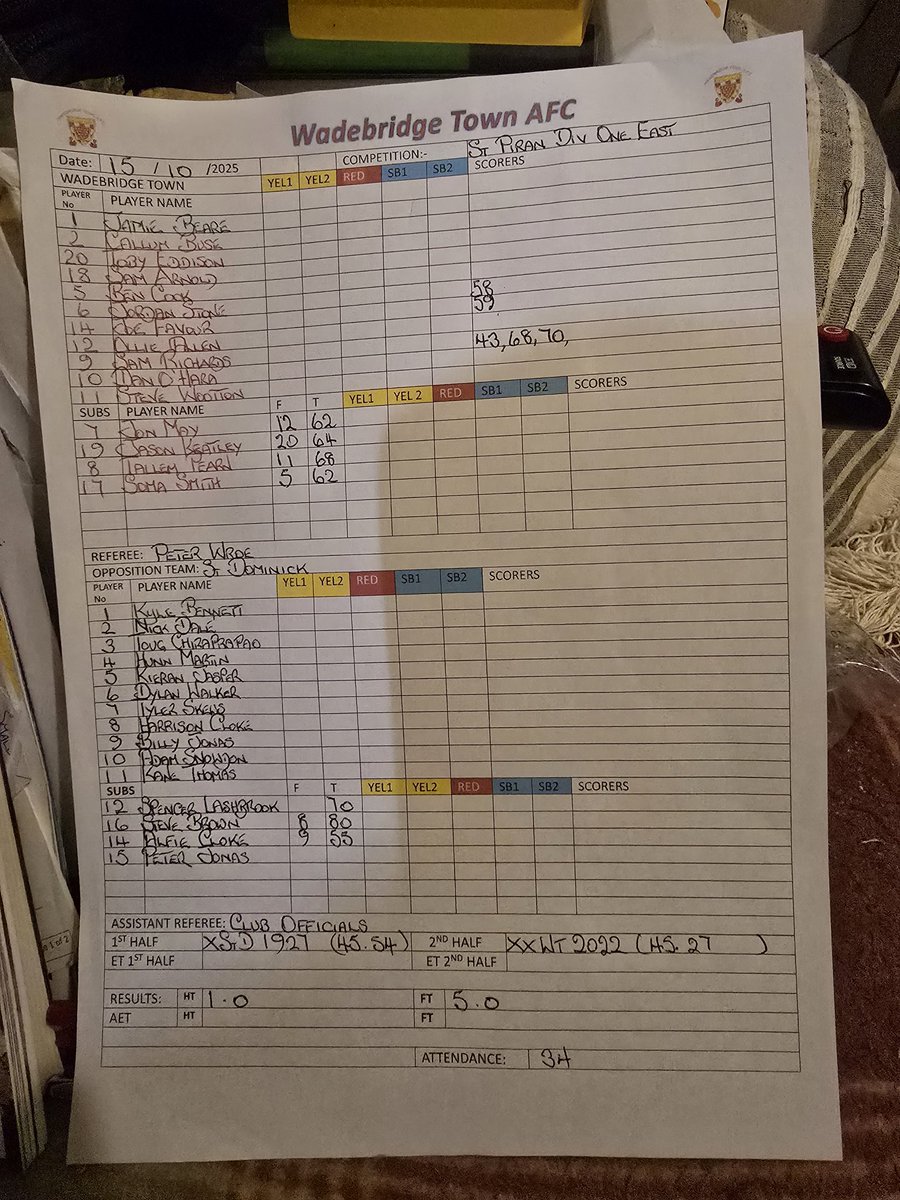 Wadebridge Town AFC
Date: 15 / 10 /2025 COMPETITION:- ST PIRAN DIV ONE EAST
WADEBRIDGE TOWN YEL1 YEL2 RED SB1 SB2 SCORERS
PLAYER No PLAYER NAME
1 JAMIE BEARE
2 CALLUM BUSE
20 TOBY EDDISON
18 SAM ARNOLD
5 BEN COOK 58
6 JORDAN STONE 59
14 JOE FAVOUR
12 OLLIE ALLEN 43, 68, 70,
9 SAM RICHARDS
10 DAN O'HARA
11 STEVE WOOTTON
SUBS PLAYER NAME F T YEL1 YEL 2 RED SB1 SB2 SCORERS
7 JON MAY 12 62
19 JASON KEATLEY 20 64
8 TALLEM FEARN 11 68
17 SOMA SMITH 5 62
REFEREE: PETER WROE
OPPOSITION TEAM: ST DOMINICK
PLAYER No PLAYER NAME YEL1 YEL2 RED SB1 SB2 SCORERS
1 KYLE BENNETT
2 NICK DALE
3 TOUG CHIRAPRAPAO
4 HUNN MARTIN
5 KIERAN JASPER
6 DYLAN WALKER
7 TYLER SKEWS
8 HARRISON CLOKE
9 BILLY JONAS
10 ADAM SNOWDON
11 KANE THOMAS
SUBS F T YEL1 YEL2 RED SB1 SB2 SCORERS
12 SPENCER LASHBROOK 70
16 STEVE BROWN 8 80
14 ALFIE CLOKE 9 55
15 PETER JONAS
ASSISTANT REFEREE: CLUB OFFICIALS
1ST HALF XStD 1927 (45.54) 2ND HALF XXWT 2022 (45.27 )
ET 1ST HALF ET 2ND HALF
RESULTS: HT 1.0 FT 5.0
AET HT FT
ATTENDANCE: 34